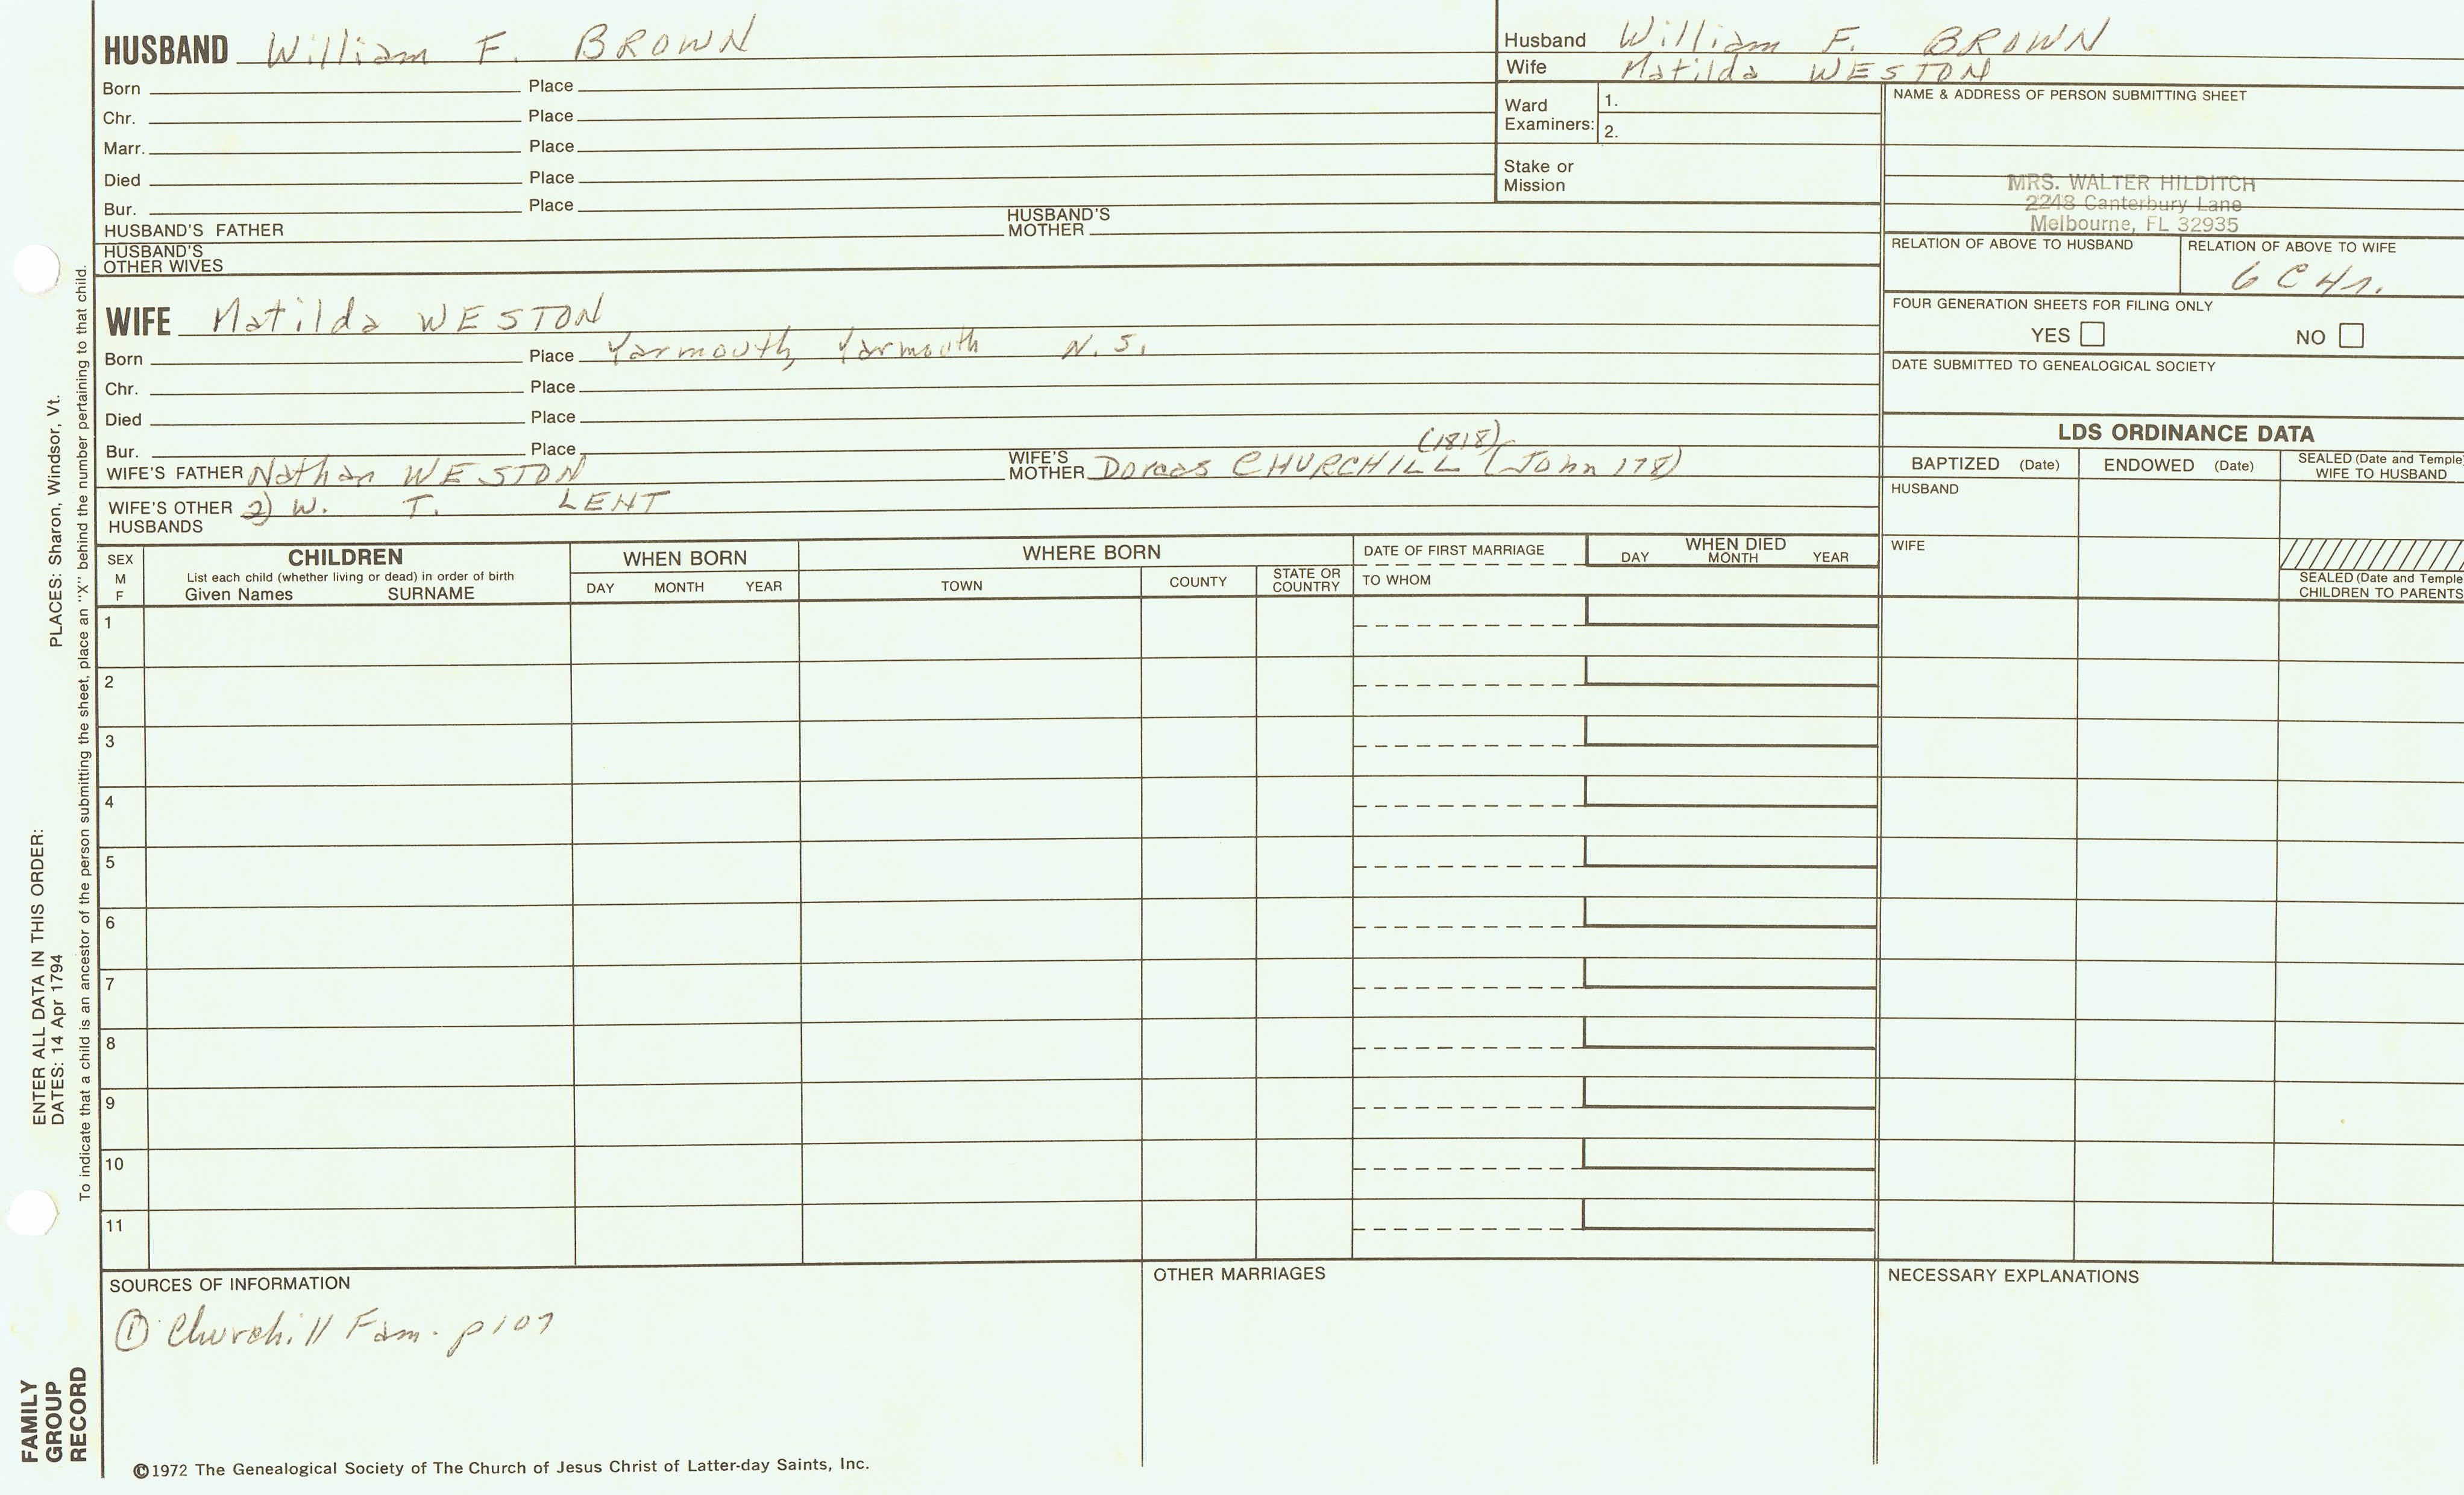 HUSBAND William F. BROWN
Born Place
Chr. Place
Marr. Place
Died Place
Bur. Place
HUSBAND'S FATHER HUSBAND'S MOTHER
HUSBAND'S OTHER WIVES
Husband William F. BROWN
Wife Matilda WESTON
Ward Examiners: 1.
2.
Stake or Mission
NAME & ADDRESS OF PERSON SUBMITTING SHEET
MRS. WALTER HILDITCH
2248 Canterbury Lane
Melbourne, FL 32935
RELATION OF ABOVE TO HUSBAND RELATION OF ABOVE TO WIFE
6 C 4r.
FOUR GENERATION SHEETS FOR FILING ONLY
YES NO
DATE SUBMITTED TO GENEALOGICAL SOCIETY
WIFE Matilda WESTON
Born Place Yarmouth, Yarmouth N.S.
Chr. Place
Died Place
Bur. Place
(1818)
WIFE'S FATHER Nathan WESTON WIFE'S MOTHER Dorcas CHURCHILL (John 178)
WIFE'S OTHER HUSBANDS 2) W. T. LENT
LDS ORDINANCE DATA
BAPTIZED (Date) ENDOWED (Date) SEALED (Date and Temple) WIFE TO HUSBAND
HUSBAND
WIFE
SEALED (Date and Temple) CHILDREN TO PARENTS
SEX M F
CHILDREN
List each child (whether living or dead) in order of birth
Given Names SURNAME
WHEN BORN
DAY MONTH YEAR
WHERE BORN
TOWN COUNTY STATE OR COUNTRY
DATE OF FIRST MARRIAGE
TO WHOM
WHEN DIED
DAY MONTH YEAR
1
2
3
4
5
6
7
8
9
10
11
SOURCES OF INFORMATION
① Churchill Fam. p107
OTHER MARRIAGES
NECESSARY EXPLANATIONS
©1972 The Genealogical Society of The Church of Jesus Christ of Latter-day Saints, Inc.
FAMILY GROUP RECORD
ENTER ALL DATA IN THIS ORDER:
DATES: 14 Apr 1794 PLACES: Sharon, Windsor, Vt.
To indicate that a child is an ancestor of the person submitting the sheet, place an "X" behind the number pertaining to that child.